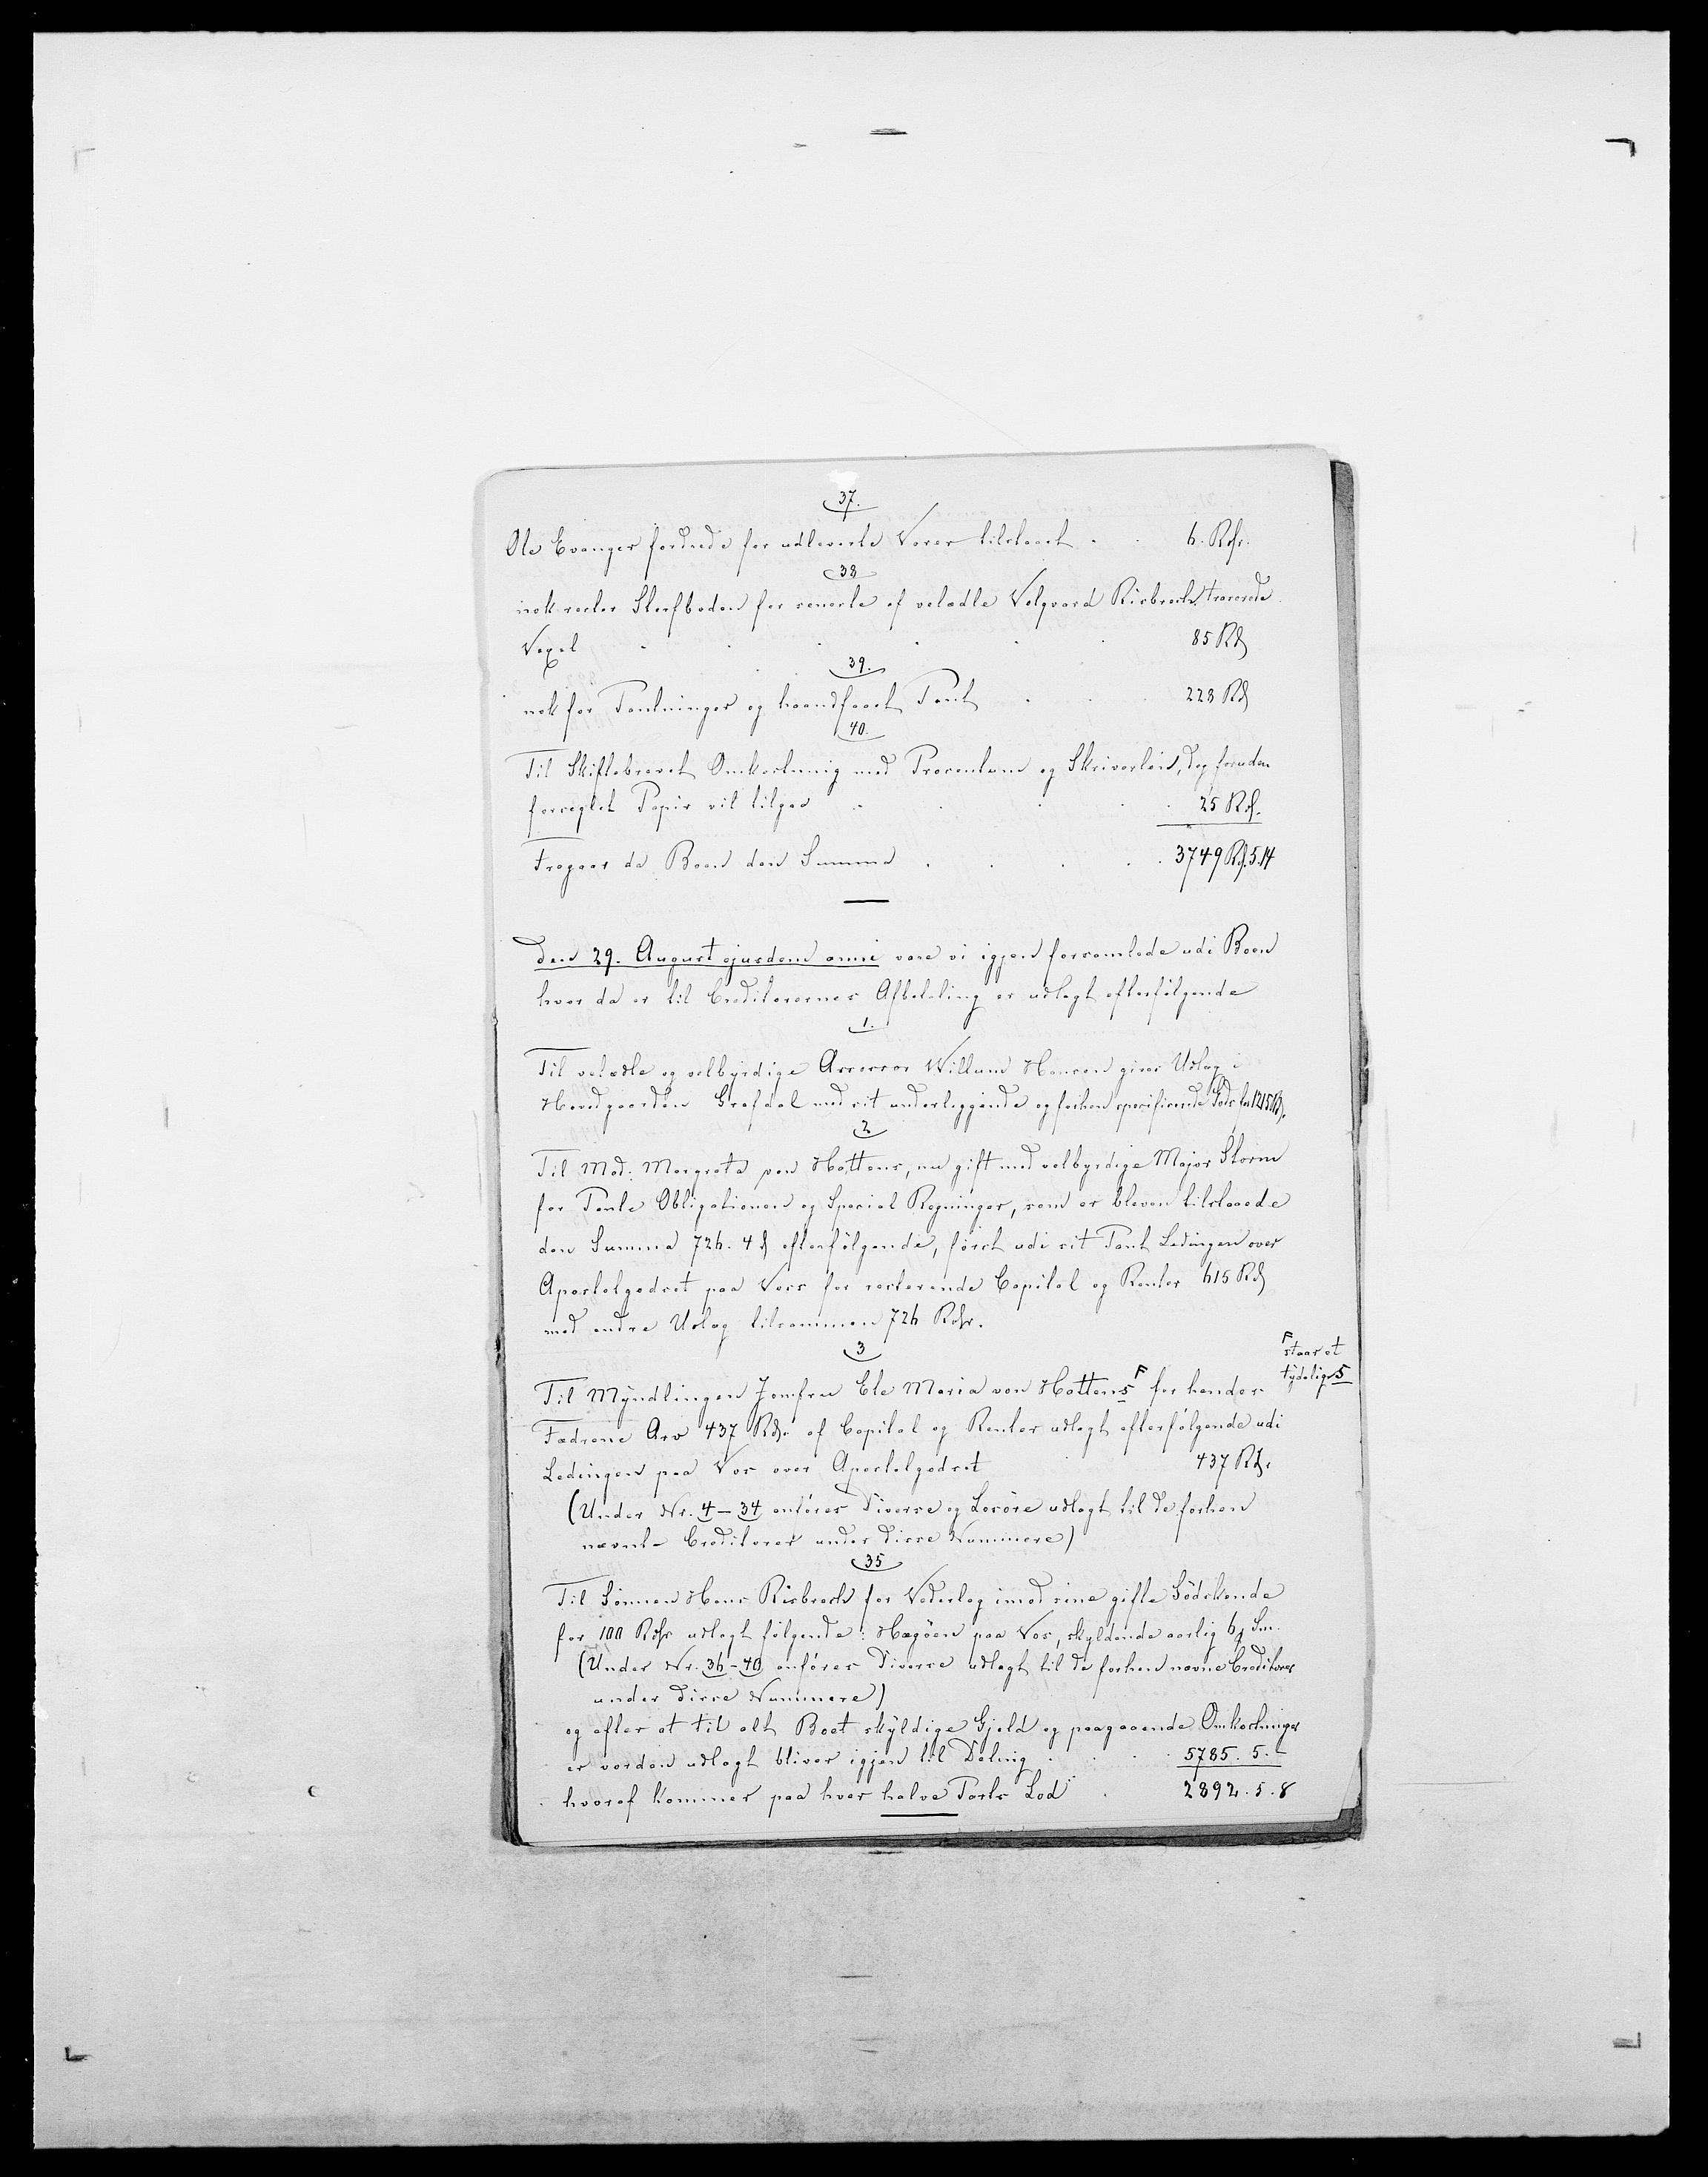 37.
Ole Evanger fordrede for udleverte Varer tilstaaet . . 6. Rdr.
38
nok rester Sterfboden for seneste af veledle Velgaard Risbrech traverede
Vexel . . . . . . 85 Rd
39.
nok for Pantninger og haandfaaet Pant . . 228 Rd
40.
Til Skiftebrevet Omkostning med Procentum og Skriverløn, dog foruden
forseglet Papir vil tilgaa . . . . . 25 Rd.
Fragaar da Boen den Summa . . . . 3749 Rd. 5. 14
Den 29. August ejusdem anni vare vi igjen forsamlede udi Boen
hvor da er til Creditorernes Afbetaling er udlagt efterfølgende
1.
Til veledle og velbyrdige Assessor Willum Hansen giver Udlæg i
Hovedgaarden Grafdal med sit underliggende og forhen specificerede Gods for 1215 Rd.
2
Til Mad. Margreta von Hattens, nu gift med velbyrdige Major Storm
for Pante Obligationen og Special Regninger, som er bleven tilstaaede
den Summa 726. 4 ß efterfølgende, først udi sit Pant Ledingen over
Apostelgodset paa Voss for resterende Capital og Renter 615 Rd
med andre Udlæg tilsammen 726 Rdr.
3
F staar et
tydelig 5
Til Myndlingen Jomfru Ele Maria von Hattens F for hendes
Fædrene Arv 437 Rdr. af Capital og Renter udlagt efterfølgende udi
Ledingen paa Vos over Apostelgodset 437 Rd.
(Under Nr. 4-34 anføres Diverse og Løsøre udlagt til de forhen
nævnte Creditorer under disse Nummere)
35
Til Sønnen Hans Risbrech for Vederlag imod sine gifte Sødskende
for 100 Rdr udlagt følgende: Hægøen paa Vos, skyldende aarlig 6 Sm.
(Under Nr. 36-40 anføres Diverse udlagt til de forhen nævne Creditorer
under disse Nummere)
og efter at til alt Boet skyldige Gjeld og paagaaende Omkostninger
er vorden udlagt bliver igjen til Deling . . . 5785. 5. -
hvoraf kommer paa hver halve Parts Lod . 2892. 5. 8